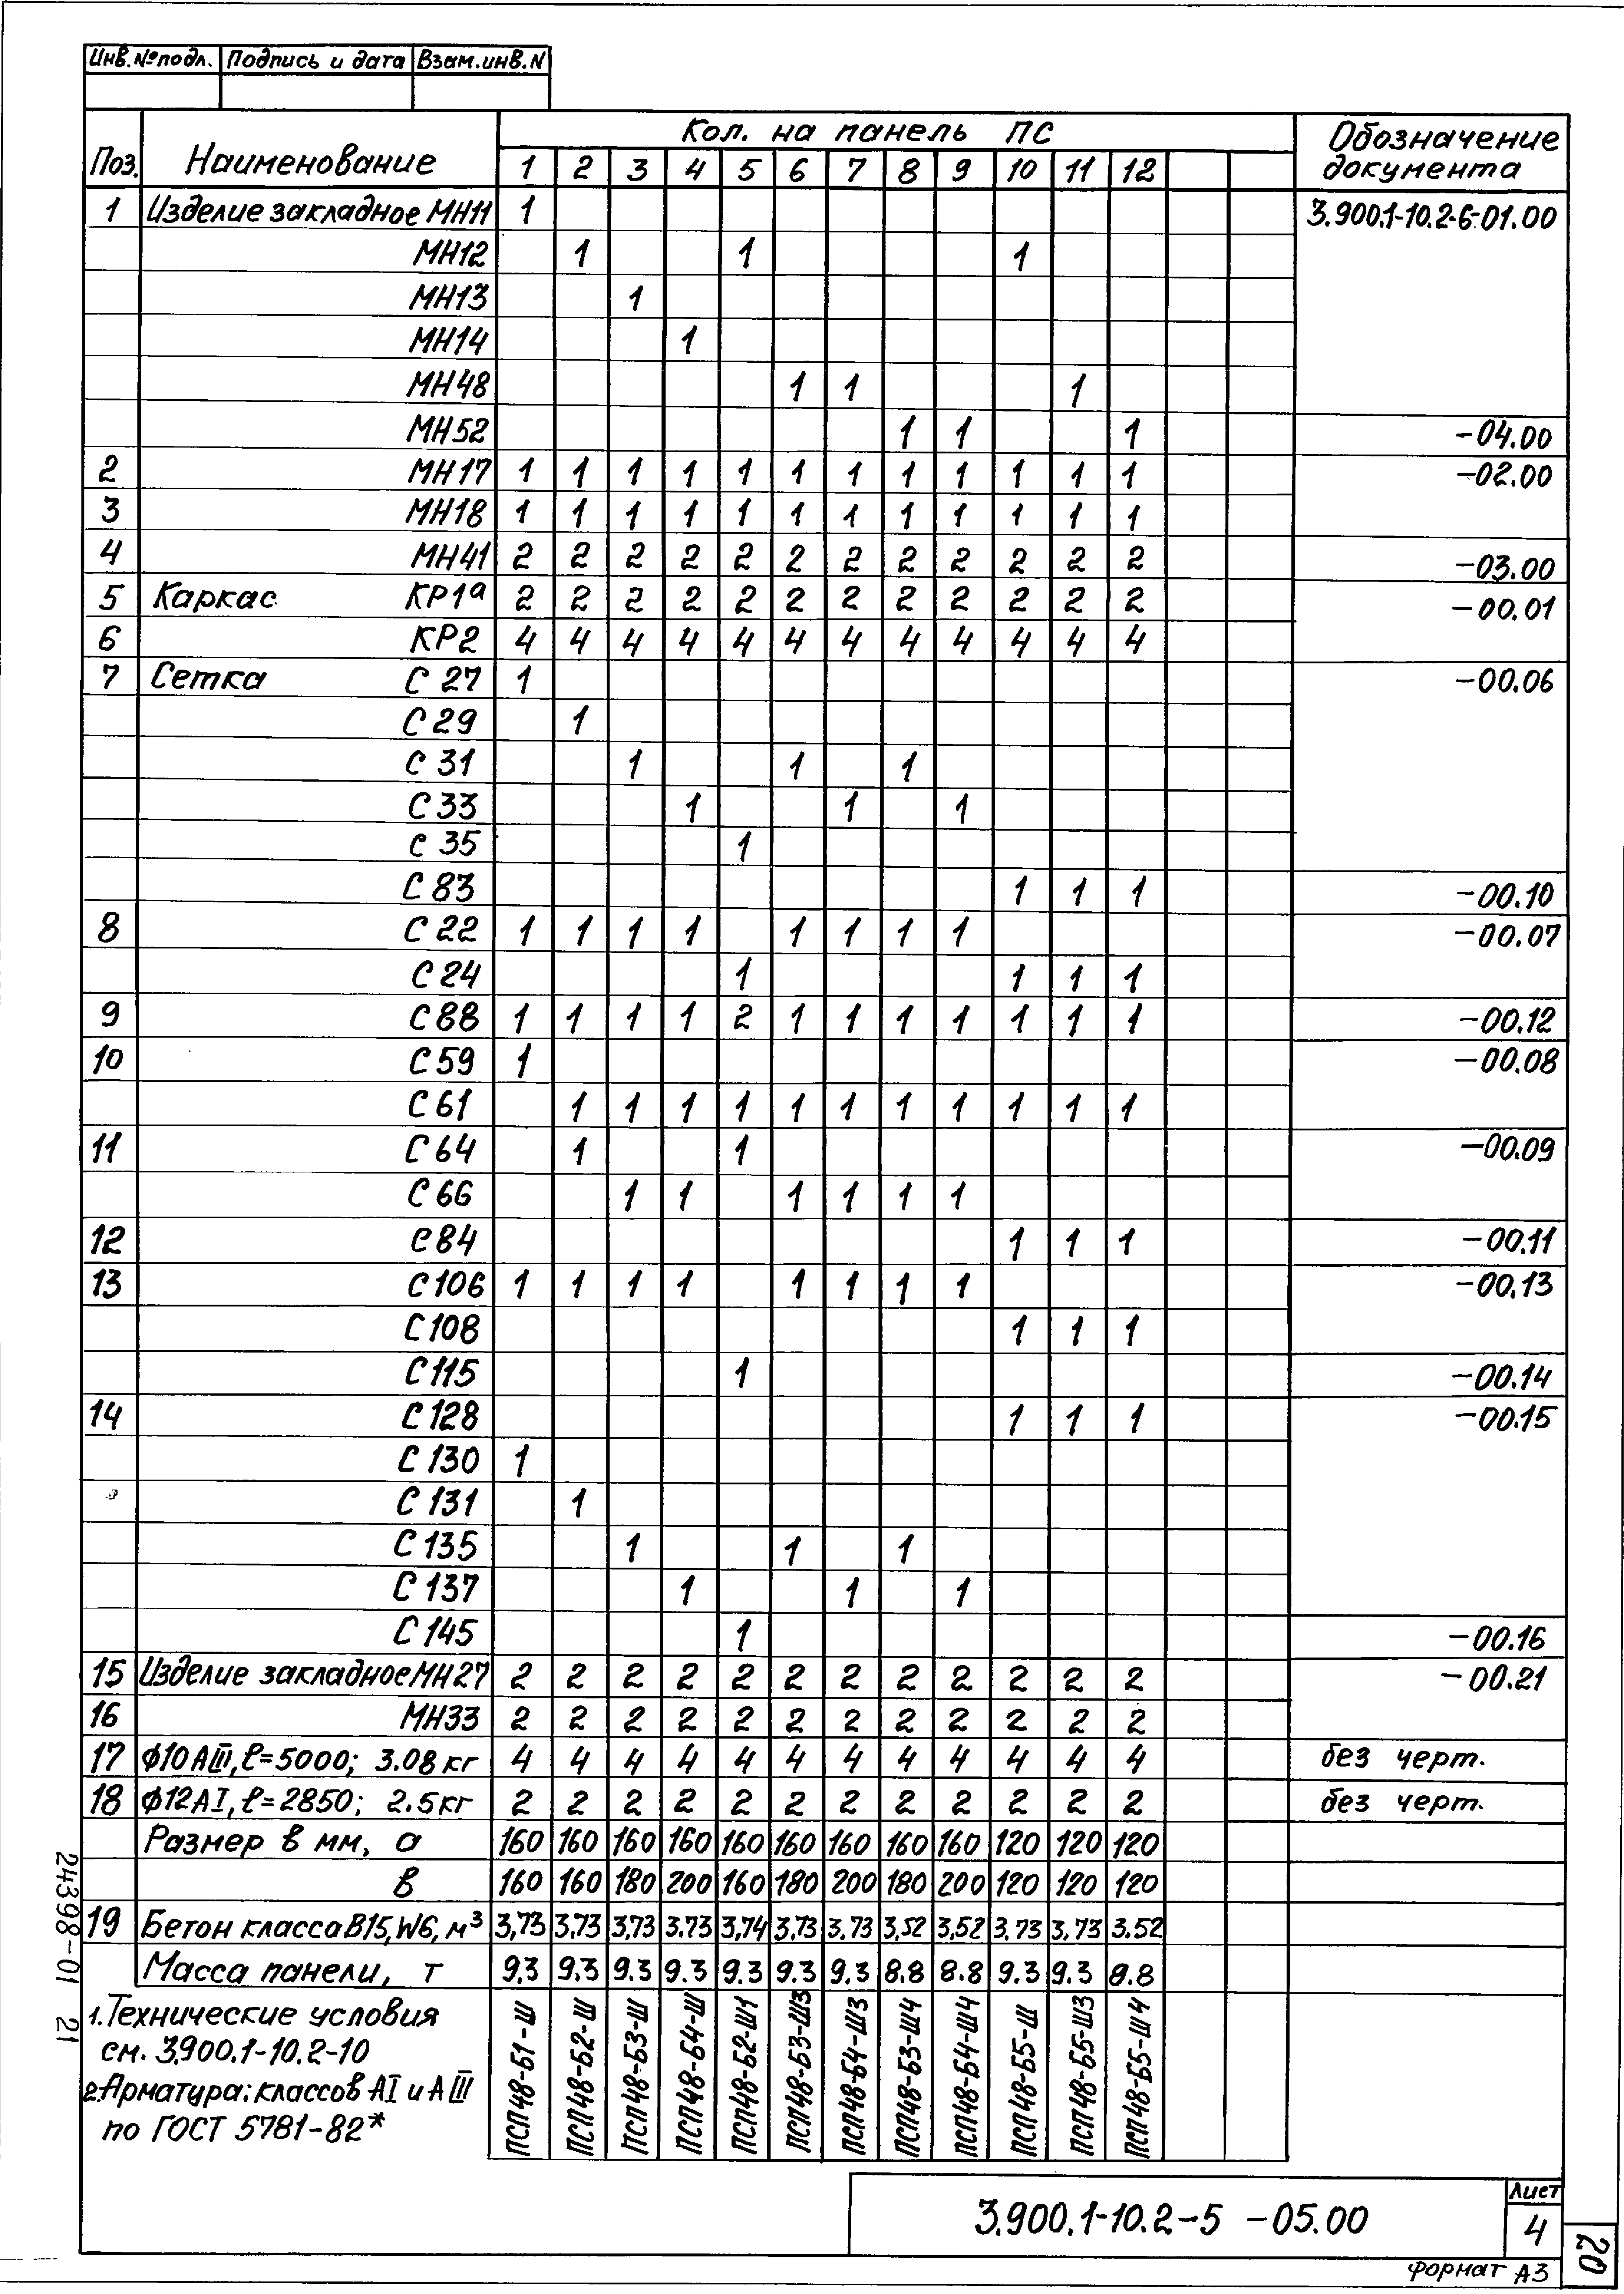 Инв.№подл. Подпись и дата Взам.инв.N
Поз. Наименование Кол. на панель ПС Обозначение документа
1 2 3 4 5 6 7 8 9 10 11 12
1 Изделие закладное МН11 1 3.900.1-10.2-6-01.00
МН12 1 1 1
МН13 1
МН14 1
МН48 1 1 1
МН52 1 1 1 -04.00
2 МН17 1 1 1 1 1 1 1 1 1 1 1 1 -02.00
3 МН18 1 1 1 1 1 1 1 1 1 1 1 1
4 МН41 2 2 2 2 2 2 2 2 2 2 2 2 -03.00
5 Каркас КР1а 2 2 2 2 2 2 2 2 2 2 2 2 -00.01
6 КР2 4 4 4 4 4 4 4 4 4 4 4 4
7 Сетка С 27 1 -00.06
С 29 1
С 31 1 1 1
С 33 1 1 1
С 35 1
С 83 1 1 1 -00.10
8 С 22 1 1 1 1 1 1 1 1 -00.07
С 24 1 1 1 1
9 С 88 1 1 1 1 2 1 1 1 1 1 1 1 -00.12
10 С 59 1 -00.08
С 61 1 1 1 1 1 1 1 1 1 1 1
11 С 64 1 1 -00.09
С 66 1 1 1 1 1 1
12 С 84 1 1 1 -00.11
13 С 106 1 1 1 1 1 1 1 1 -00.13
С 108 1 1 1
С 115 1 -00.14
14 С 128 1 1 1 -00.15
С 130 1
С 131 1
С 135 1 1 1
С 137 1 1 1
С 145 1 -00.16
15 Изделие закладное МН27 2 2 2 2 2 2 2 2 2 2 2 2 -00.21
16 МН33 2 2 2 2 2 2 2 2 2 2 2 2
17 ф10АIII, ℓ=5000; 3.08 кг 4 4 4 4 4 4 4 4 4 4 4 4 без черт.
18 ф12АI, ℓ=2850; 2.5кг 2 2 2 2 2 2 2 2 2 2 2 2 без черт.
Размер в мм, а 160 160 160 160 160 160 160 160 160 120 120 120
в 160 160 180 200 160 180 200 180 200 120 120 120
19 Бетон класса В15, W6, м³ 3,73 3,73 3,73 3.73 3,74 3,73 3.73 3,52 3,52 3.73 3,73 3.52
Масса панели, т 9.3 9.3 9.3 9.3 9.3 9.3 9.3 8.8 8.8 9.3 9.3 8.8
ПСП48-Б1-Ш
ПСП48-Б2-Ш
ПСП48-Б3-Ш
ПСП48-Б4-Ш
ПСП48-Б2-Ш1
ПСП48-Б3-Ш3
ПСП48-Б4-Ш3
ПСП48-Б3-Ш4
ПСП48-Б4-Ш4
ПСП48-Б5-Ш
ПСП48-Б5-Ш3
ПСП48-Б5-Ш4
1. Технические условия
см. 3.900.1-10.2-10
2. Арматура: классов АI и АIII
по ГОСТ 5781-82*
24398-01 21
3.900.1-10.2-5 -05.00
Лист
4
20
Формат А3